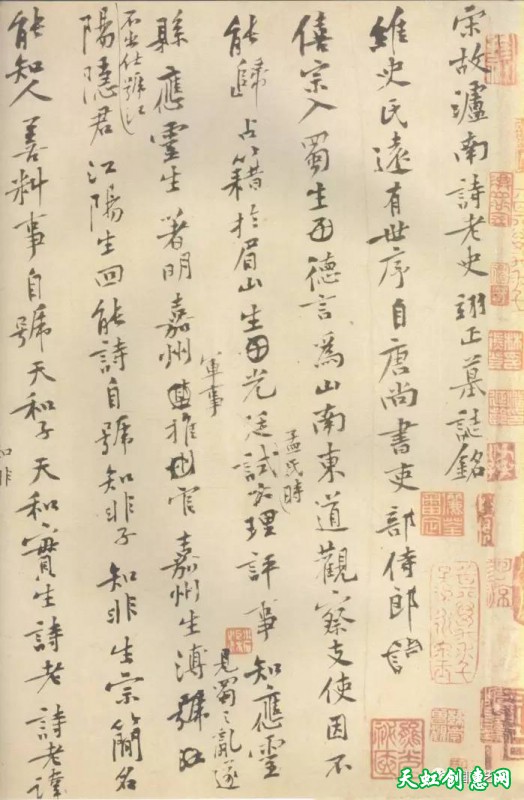 宋故瀘南詩老史翊正墓誌銘
維史氏遠有世序自唐尚書吏部侍郎
僖宗入蜀生德言為山南東道觀察支使因不
孟氏時
能歸占籍於眉山生光廷試大理評事知應靈
軍事
縣應靈生著明嘉州推官嘉州生溥號江
見蜀之亂遂
不出仕號江
陽隱君江陽生回能詩自號知非子知非生宗簡名
能知人善料事自號天和子天和實生詩老詩老諱
知非
天虹创意网